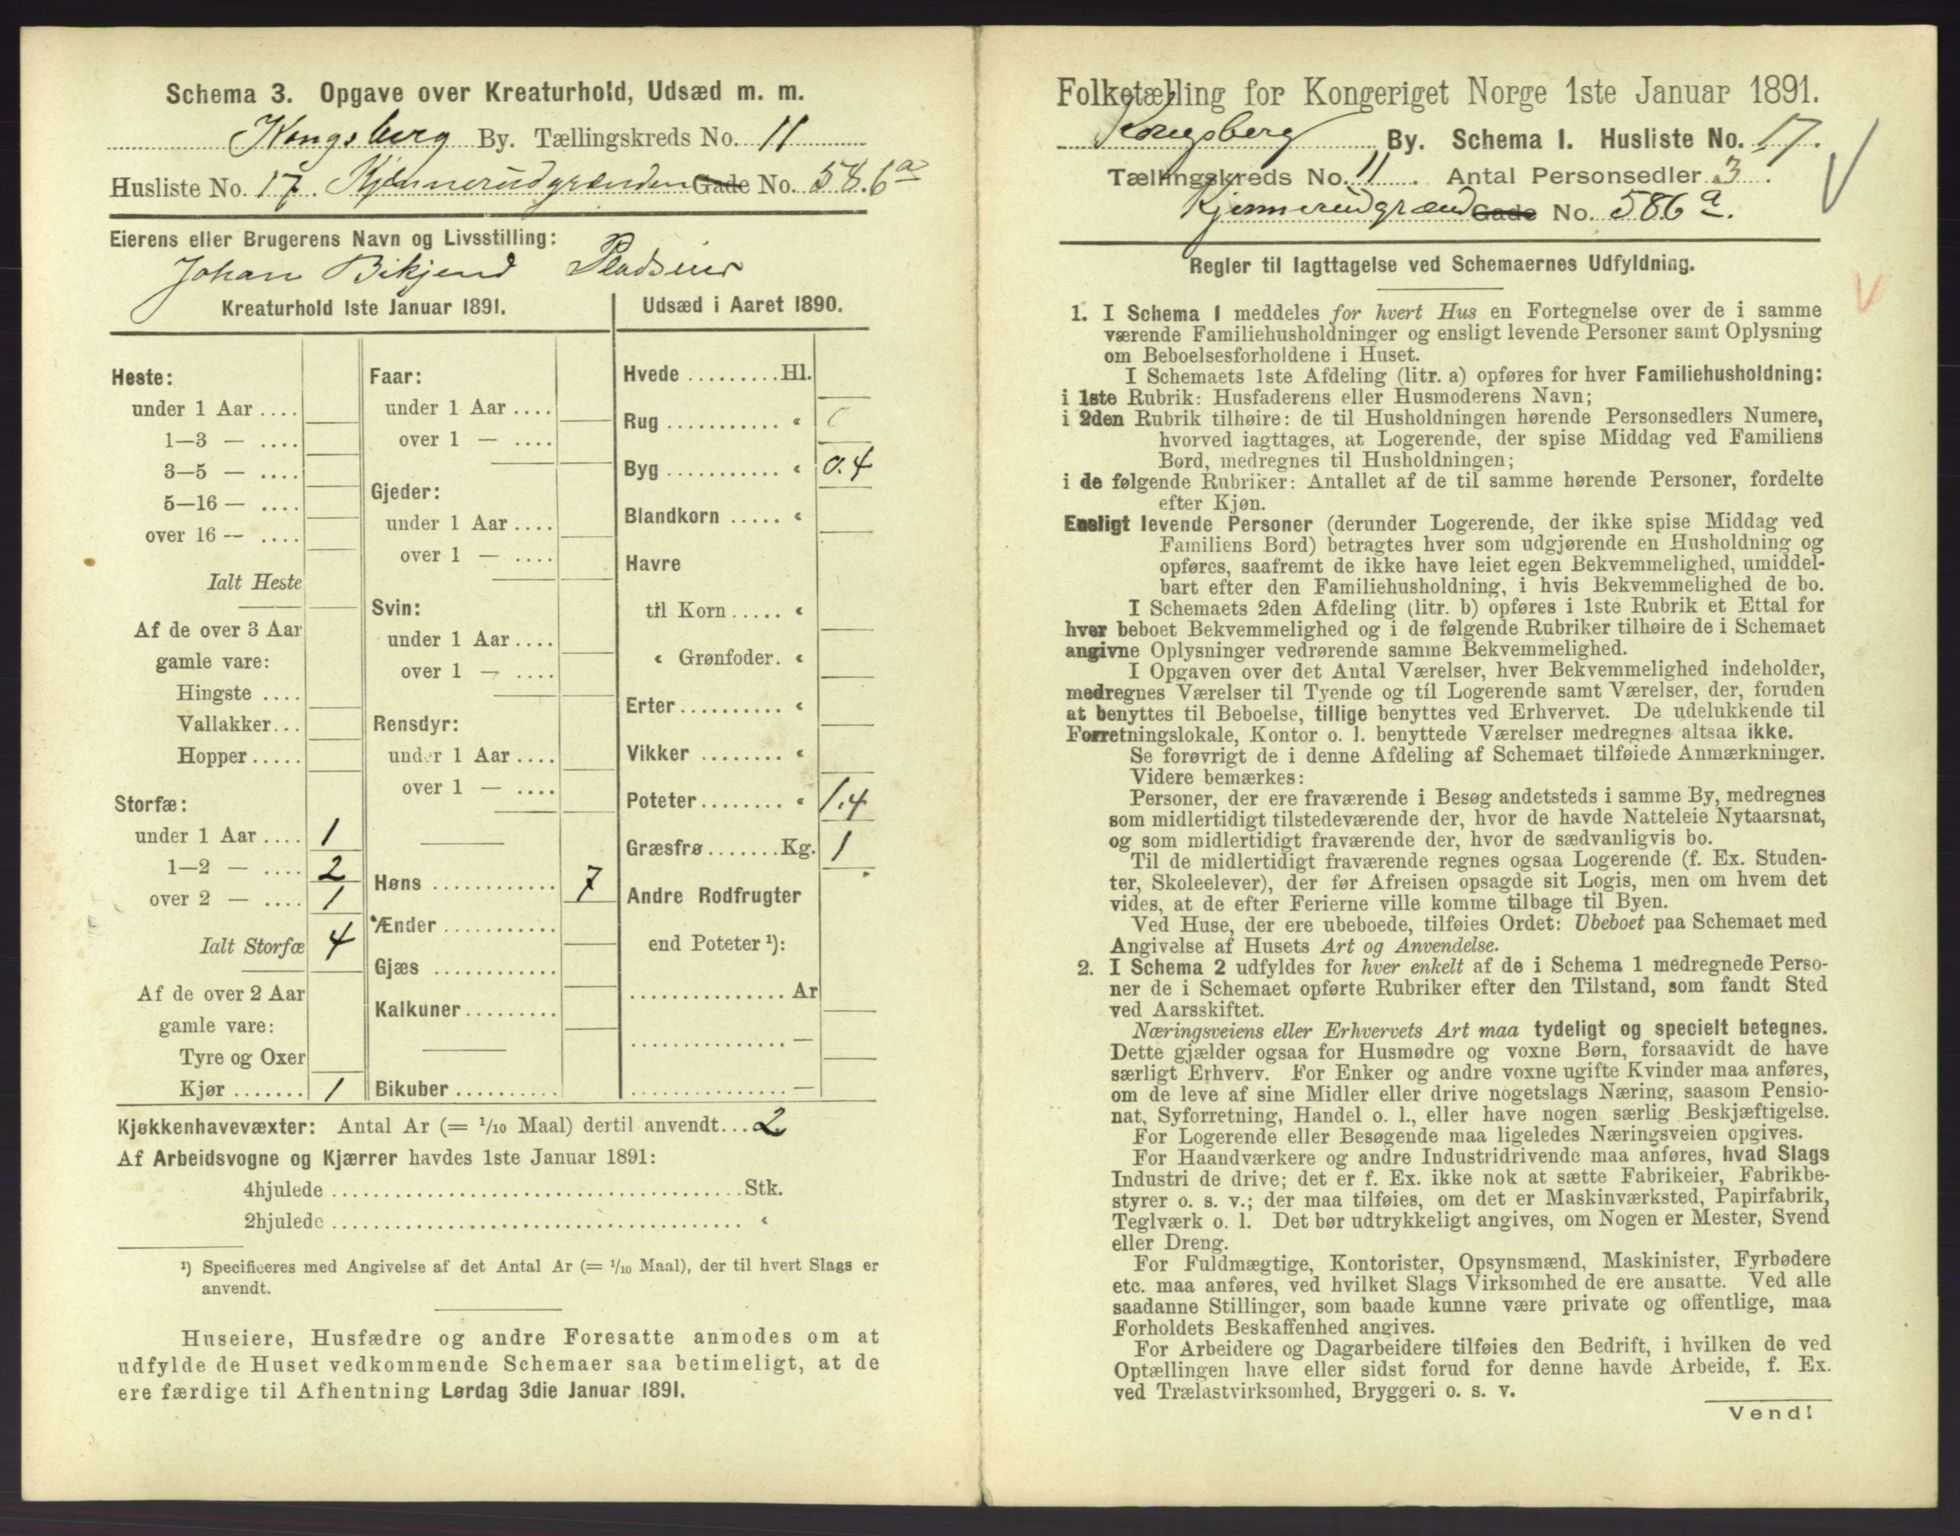 Schema 3. Opgave over Kreaturhold, Udsæd m. m.
Kongsberg By. Tællingskreds No. 11
Husliste No. 17. Kjennerudgrænden Gade No. 586a
Eierens eller Brugerens Navn og Livsstilling:
Johan Bikjend Pladseier
Kreaturhold 1ste Januar 1891.
Heste:
under 1 Aar ....
1—3 — ....
3—5 — ....
5—16 — ....
over 16 — ....
Ialt Heste
Af de over 3 Aar
gamle vare:
Hingste ....
Vallakker...
Hopper.....
Storfæ:
under 1 Aar .... 1
1—2 — .... 2
over 2 — .... 1
Ialt Storfæ 4
Af de over 2 Aar
gamle vare:
Tyre og Oxer
Kjør ....... 1
Faar:
under 1 Aar ....
over 1 — ....
Gjeder:
under 1 Aar ....
over 1 — ....
Svin:
under 1 Aar ....
over 1 — ....
Rensdyr:
under 1 Aar ....
over 1 — ....
Høns ............ 7
Ænder ...........
Gjæs ............
Kalkuner.........
Bikuber ..........
Udsæd i Aaret 1890.
Hvede .........Hl.
Rug ........... «
Byg ........... « 0.4
Blandkorn ..... «
Havre
til Korn ..... «
« Grønfoder. «
Erter.......... «
Vikker ........ «
Poteter........ « 1.4
Græsfrø.......Kg. 1
Andre Rodfrugter
end Poteter ¹):
............... Ar
............... —
............... —
Kjøkkenhavevæxter: Antal Ar (= 1/10 Maal) dertil anvendt... 2
Af Arbeidsvogne og Kjærrer havdes 1ste Januar 1891:
4hjulede ........................................Stk.
2hjulede ........................................ «
¹) Specificeres med Angivelse af det Antal Ar (= 1/10 Maal), der til hvert Slags er
anvendt.
Huseiere, Husfædre og andre Foresatte anmodes om at
udfylde de Huset vedkommende Schemaer saa betimeligt, at de
ere færdige til Afhentning Lørdag 3die Januar 1891.
Folketælling for Kongeriget Norge 1ste Januar 1891.
Kongsberg By. Schema 1. Husliste No. 17.
Tællingskreds No. 11. Antal Personsedler 3.
Kjennerudgrænd Gade No. 586a.
Regler til Iagttagelse ved Schemaernes Udfyldning.
1. I Schema 1 meddeles for hvert Hus en Fortegnelse over de i samme
værende Familiehusholdninger og ensligt levende Personer samt Oplysning
om Beboelsesforholdene i Huset.
I Schemaets 1ste Afdeling (litr. a) opføres for hver Familiehusholdning:
i 1ste Rubrik: Husfaderens eller Husmoderens Navn;
i 2den Rubrik tilhøire: de til Husholdningen hørende Personsedlers Numere,
hvorved iagttages, at Logerende, der spise Middag ved Familiens
Bord, medregnes til Husholdningen;
i de følgende Rubriker: Antallet af de til samme hørende Personer, fordelte
efter Kjøn.
Ensligt levende Personer (derunder Logerende, der ikke spise Middag ved
Familiens Bord) betragtes hver som udgjørende en Husholdning og
opføres, saafremt de ikke have leiet egen Bekvemmelighed, umiddel-
bart efter den Familiehusholdning, i hvis Bekvemmelighed de bo.
I Schemaets 2den Afdeling (litr. b) opføres i 1ste Rubrik et Ettal for
hver beboet Bekvemmelighed og i de følgende Rubriker tilhøire de i Schemaet
angivne Oplysninger vedrørende samme Bekvemmelighed.
I Opgaven over det Antal Værelser, hver Bekvemmelighed indeholder,
medregnes Værelser til Tyende og til Logerende samt Værelser, der, foruden
at benyttes til Beboelse, tillige benyttes ved Erhvervet. De udelukkende til
Forretningslokale, Kontor o. l. benyttede Værelser medregnes altsaa ikke.
Se forøvrigt de i denne Afdeling af Schemaet tilføiede Anmærkninger.
Videre bemærkes:
Personer, der ere fraværende i Besøg andetsteds i samme By, medregnes
som midlertidigt tilstedeværende der, hvor de havde Natteleie Nytaarsnat,
og som midlertidigt fraværende der, hvor de sædvanligvis bo.
Til de midlertidigt fraværende regnes ogsaa Logerende (f. Ex. Studen-
ter, Skoleelever), der før Afreisen opsagde sit Logis, men om hvem det
vides, at de efter Ferierne ville komme tilbage til Byen.
Ved Huse, der ere ubeboede, tilføies Ordet: Ubeboet paa Schemaet med
Angivelse af Husets Art og Anvendelse.
2. I Schema 2 udfyldes for hver enkelt af de i Schema 1 medregnede Perso-
ner de i Schemaet opførte Rubriker efter den Tilstand, som fandt Sted
ved Aarsskiftet.
Næringsveiens eller Erhvervets Art maa tydeligt og specielt betegnes.
Dette gjælder ogsaa for Husmødre og voxne Børn, forsaavidt de have
særligt Erhverv. For Enker og andre voxne ugifte Kvinder maa anføres,
om de leve af sine Midler eller drive nogetslags Næring, saasom Pensio-
nat, Syforretning, Handel o. l., eller have nogen særlig Beskjæftigelse.
For Logerende eller Besøgende maa ligeledes Næringsveien opgives.
For Haandværkere og andre Industridrivende maa anføres, hvad Slags
Industri de drive; det er f. Ex. ikke nok at sætte Fabrikeier, Fabrikbe-
styrer o. s. v.; der maa tilføies, om det er Maskinværksted, Papirfabrik,
Teglværk o. l. Det bør udtrykkeligt angives, om Nogen er Mester, Svend
eller Dreng.
For Fuldmægtige, Kontorister, Opsynsmænd, Maskinister, Fyrbødere
etc. maa anføres, ved hvilket Slags Virksomhed de ere ansatte. Ved alle
saadanne Stillinger, som baade kunne være private og offentlige, maa
Forholdets Beskaffenhed angives.
For Arbeidere og Dagarbeidere tilføies den Bedrift, i hvilken de ved
Optællingen have eller sidst forud for denne havde Arbeide, f. Ex.
ved Trælastvirksomhed, Bryggeri o. s. v.
Vend!